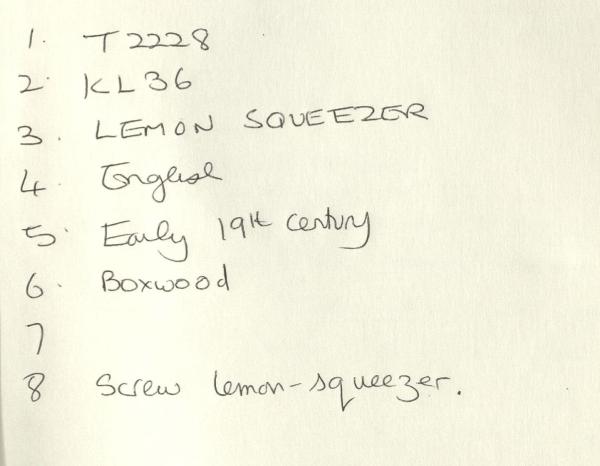 1. T2228
2. KL36
3. LEMON SQUEEZER
4. English
5. Early 19th century
6. Boxwood
7
8 Screw lemon-squeezer.